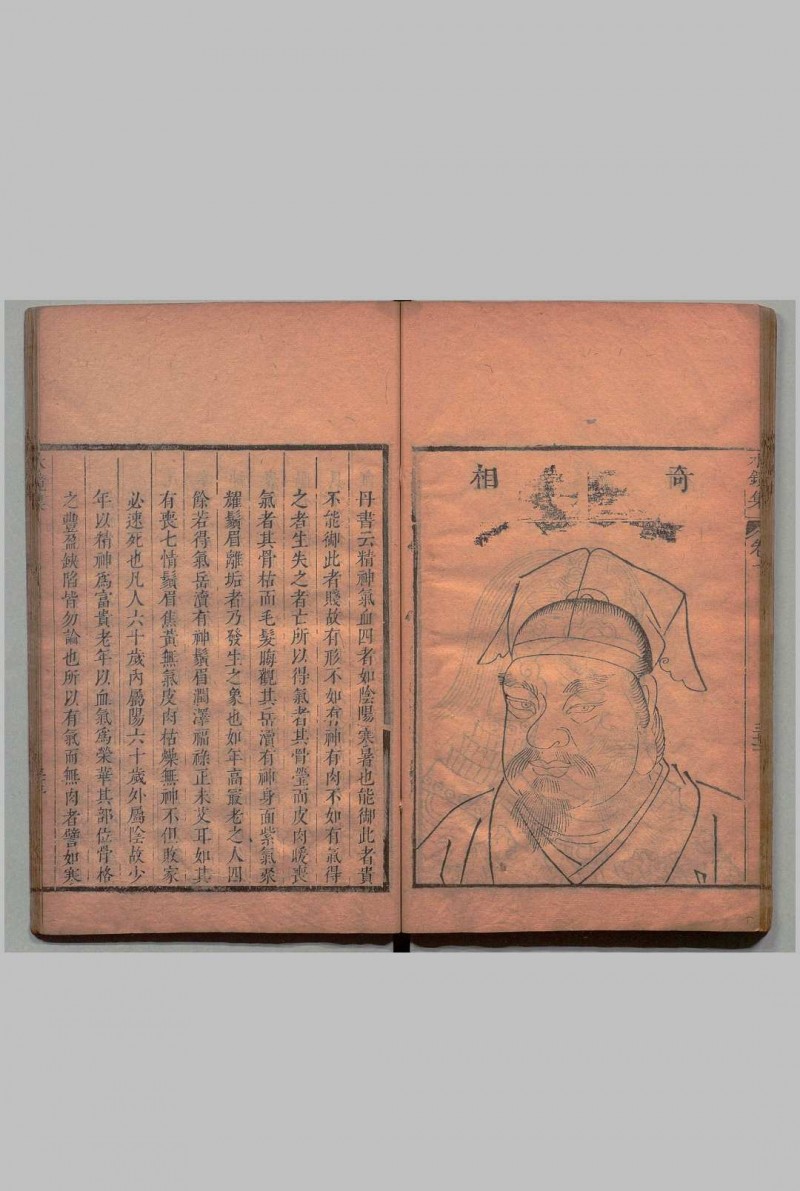 水鏡集
卷一
奇
相
丹書云精神氣血四者如陰陽寒暑也能御此者貴
不能御此者賤故有形不如有神有肉不如有氣得
之者生失之者亡所以得氣者其骨瑩而皮肉暖喪
氣者其骨枯而毛髮晦觀其岳瀆有神身面紫氣榮
耀鬚眉離垢者乃發生之象也如年高最老之人四
餘若得氣岳瀆有神鬚眉潤澤福祿正未艾耳如其
有喪七情鬚眉焦黃無氣皮肉枯燥無神不但敗家
必速死也凡人六十歲內屬陽六十歲外屬陰故少
年以精神爲富貴老年以血氣爲榮華其部位骨格
之豐盈缺陷皆勿論也所以有氣而無肉者譬如寒